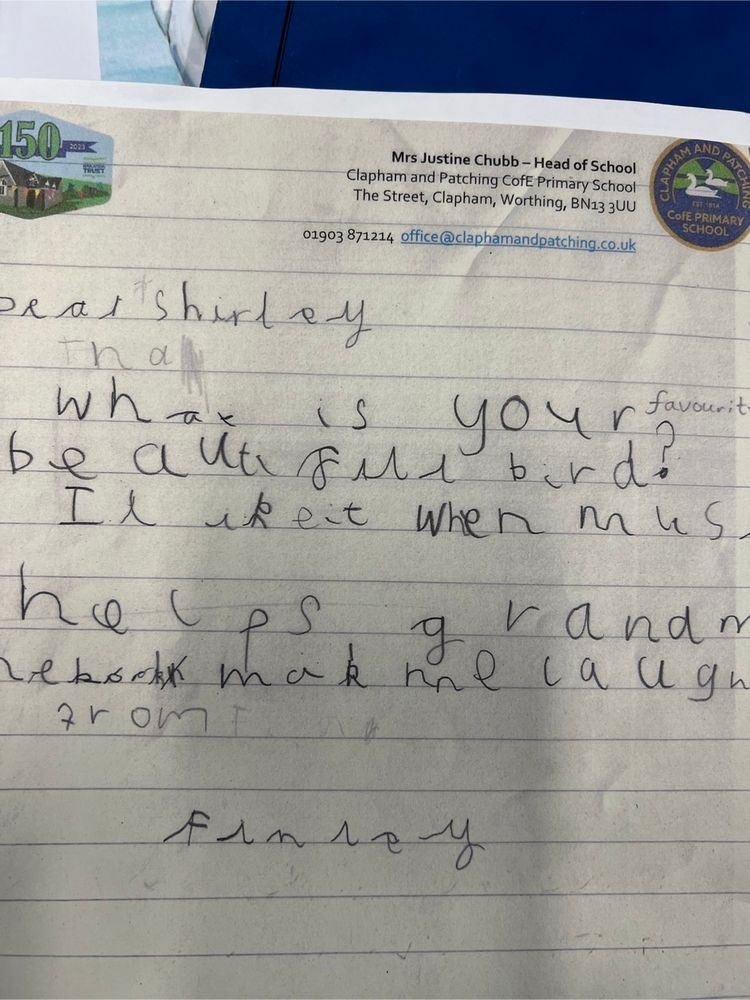 150 2023
Mrs Justine Chubb – Head of School
Clapham and Patching CofE Primary School
The Street, Clapham, Worthing, BN13 3UU
01903 871214 office@claphamandpatching.co.uk
CLAPHAM AND PATCHING
EST. 1814
CofE PRIMARY
SCHOOL
Dear Shirley
Tha
What is your favourit
beautifull bird?
I likeit when mus
helps grandm
mak me laugh
from
Finley